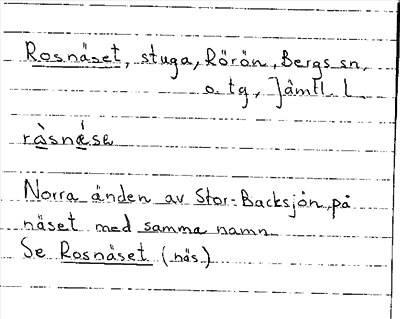 Rosnäset, stuga, Rörön, Bergs sn,
o. tg, Jämtl. l.
rà̱snǽ̱se
Norra änden av Stor-Backsjön, på
näset med samma namn.
Se Rosnäset (näs.)